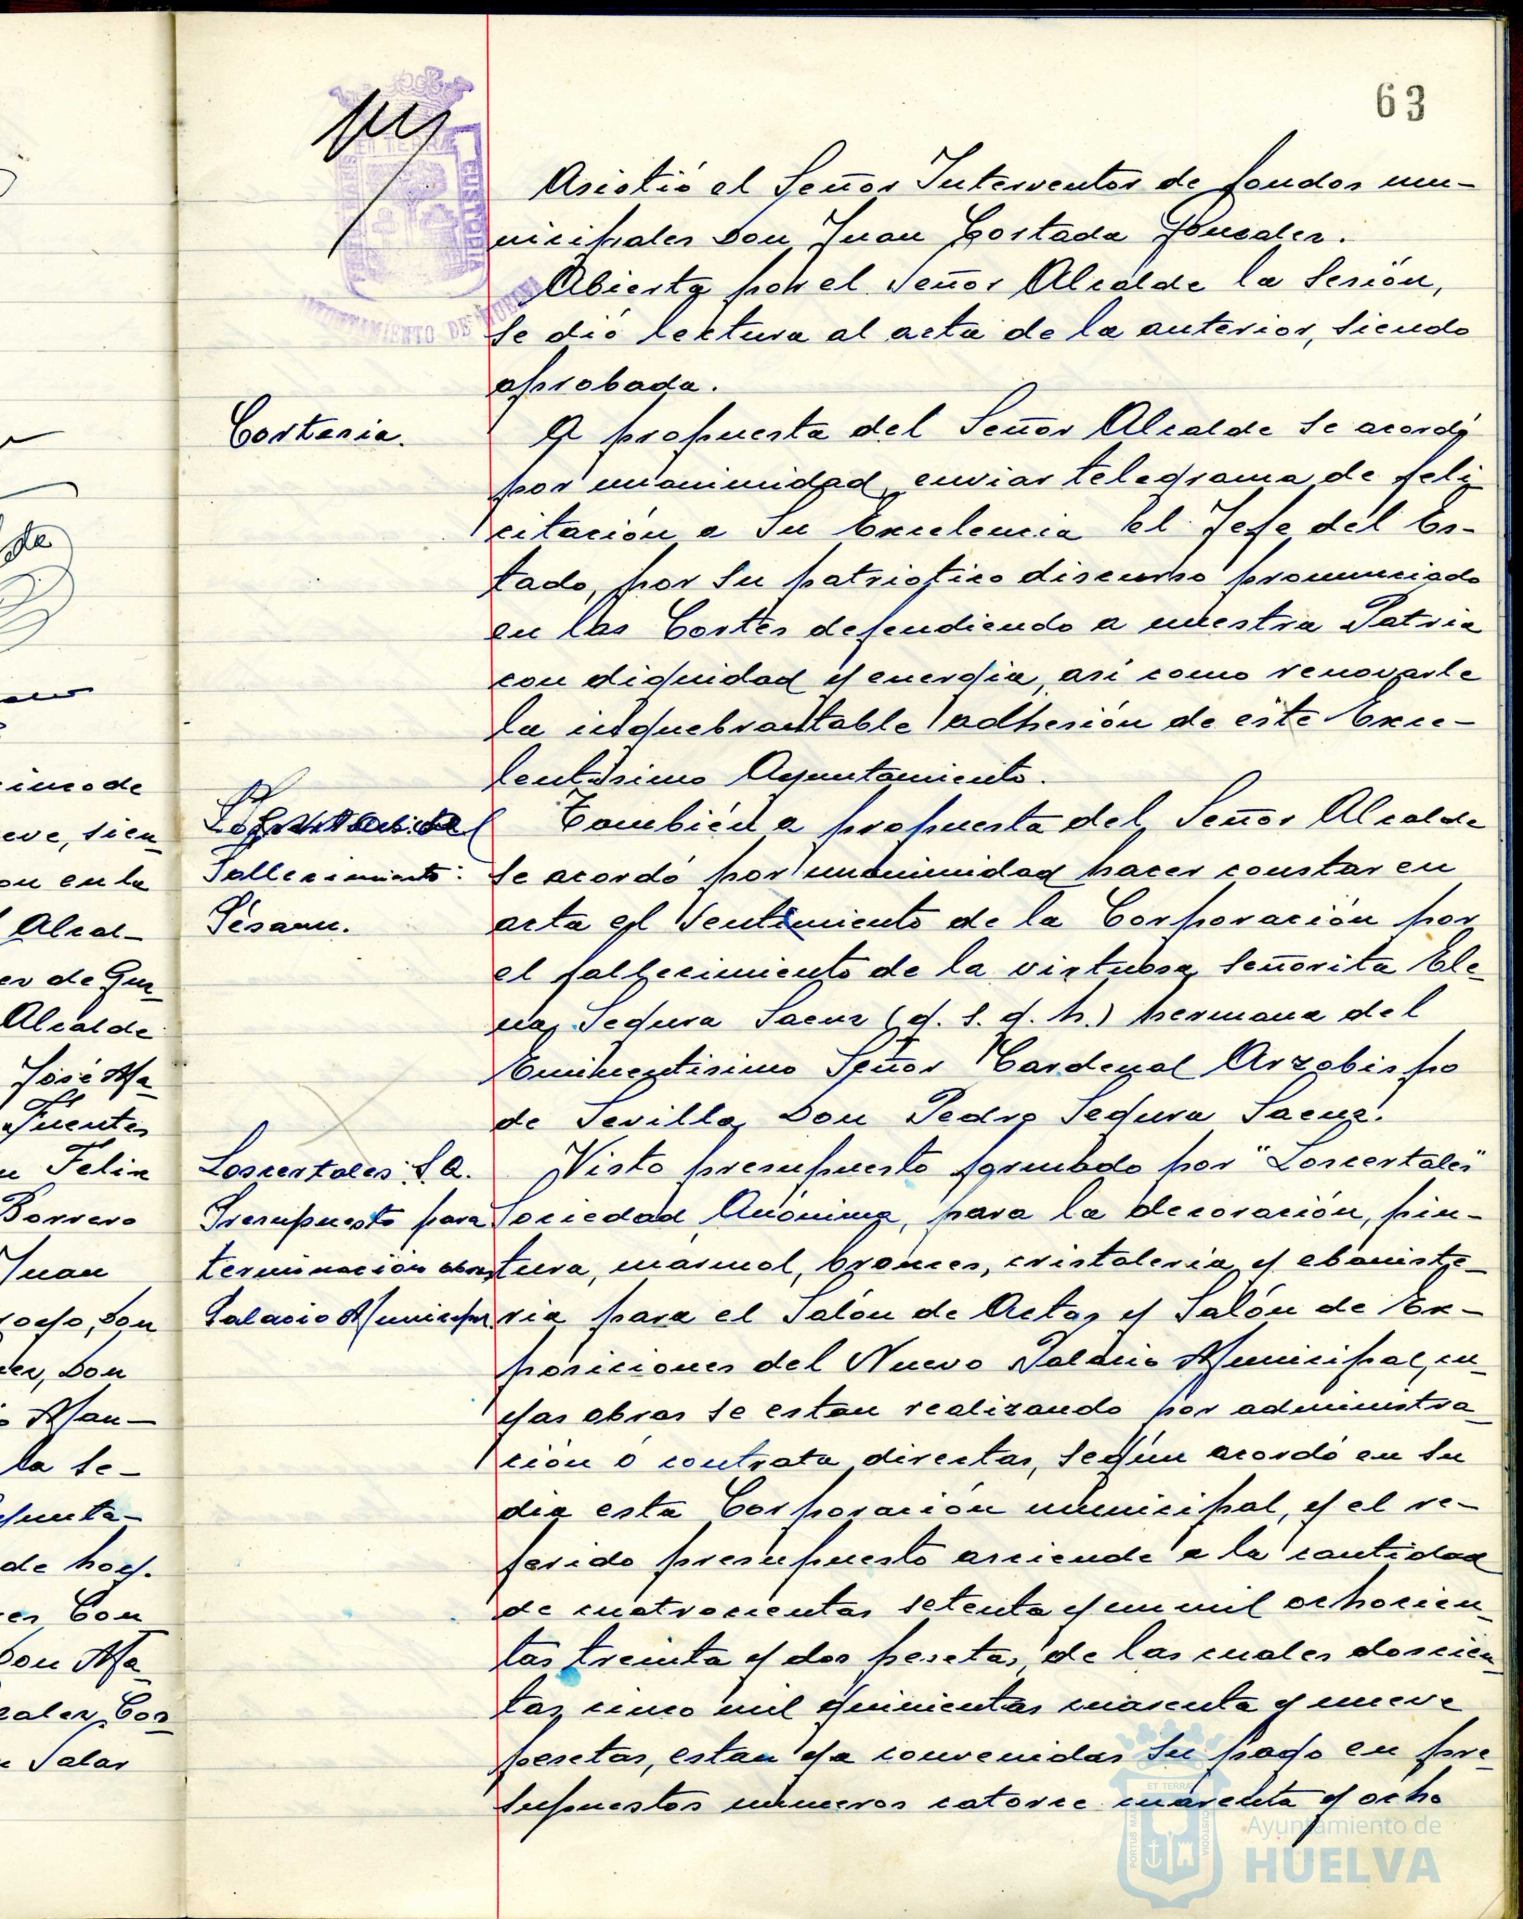 63
Asistió el Señor Interventor de fondos mu-
nicipales Don Juan Cortada Gonzalez.
Abierta por el Señor Alcalde la Sesión,
se dió lectura al acta de la anterior, siendo
aprobada.
Cortesia.
A propuesta del Señor Alcalde se acordó
por unanimidad enviar telegrama de feli_
citación a Su Excelencia el Jefe del Es-
tado, por su patriotico discurso pronunciado
en las Cortes defendiendo a nuestra Patria
con dignidad y energia, asi como renovarle
la inquebrantable adhesión de este Exce-
lentisimo Ayuntamiento.
Fallecimiento:
Pésame.
También a propuesta del Señor Alcalde
se acordó por unanimidad hacer constar en
acta el sentimiento de la Corporación por
el fallecimiento de la virtuosa señorita Ele-
na Segura Saenz (q. s. g. h.) hermana del
Eminentisimo Señor Cardenal Arzobispo
de Sevilla Don Pedro Segura Saenz.
Loscertales S.A.
Presupuesto para
terminación obras
Palacio Municipal
Visto presupuesto formulado por "Loscertales"
Sociedad Anónima, para la decoración, pin-
tura, marmol, bronces, cristaleria y ebaniste_
ria para el Salón de Actos y Salón de Ex-
posiciones del Nuevo Palacio Municipal, cu_
yas obras se estan realizando por administra_
ción ó contrata directas, según acordó en su
dia esta Corporación municipal, y el re-
ferido presupuesto asciende a la cantidad
de cuatrocientas setenta y un mil ochocien_
tas treinta y dos pesetas, de las cuales doscien_
tas cinco mil quinientas cuarenta y nueve
pesetas, estan ya convenidas su pago en pre_
supuestos numeros catorce cuarenta y ocho
AYUNTAMIENTO DE HUELVA
ET TERRAE
CUSTODIA
inco de
eve, sien_
on en la
Alcal-
er de Guz_
Alcalde
José Ma_
Fuentes
n Felix
Borrero
Juan
royo, Don
er, Don
Man-
la se-
yunta-
de hoy.
es Con
Don Ma_
zalez Cor_
Salar
ET TERRAE
PORTUS MARIS
CUSTODIA
Ayuntamiento de
HUELVA